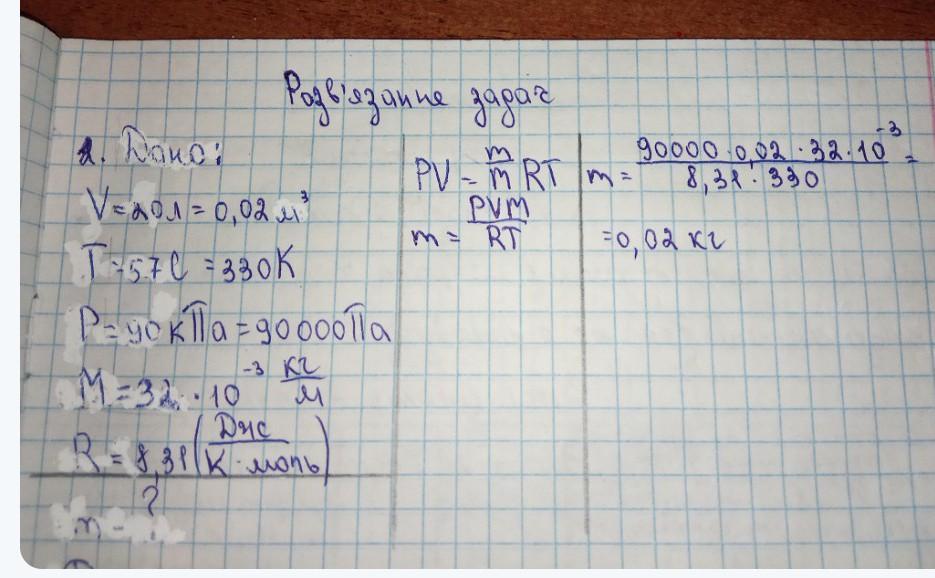 Розв'язання задач
1. Дано:
V=20л=0,02м³
T=57C=330K
P=90кПа=90000Па
M=32·10⁻³ кг/м
R=8,31(Дж/К·моль)
m-?
PV=m/m RT
m=PVM/RT
m=90000·0,02·32·10⁻³/8,31·330=
=0,02 кг